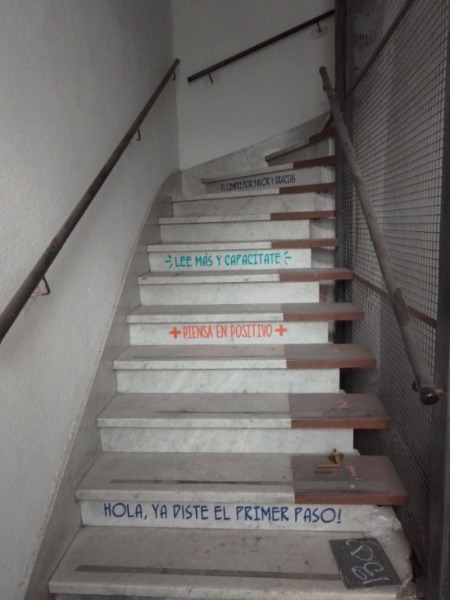 SIEMPRE POR FAVOR Y GRACIAS
LEE MÁS Y CAPACÍTATE
+ PIENSA EN POSITIVO +
HOLA, YA DISTE EL PRIMER PASO!